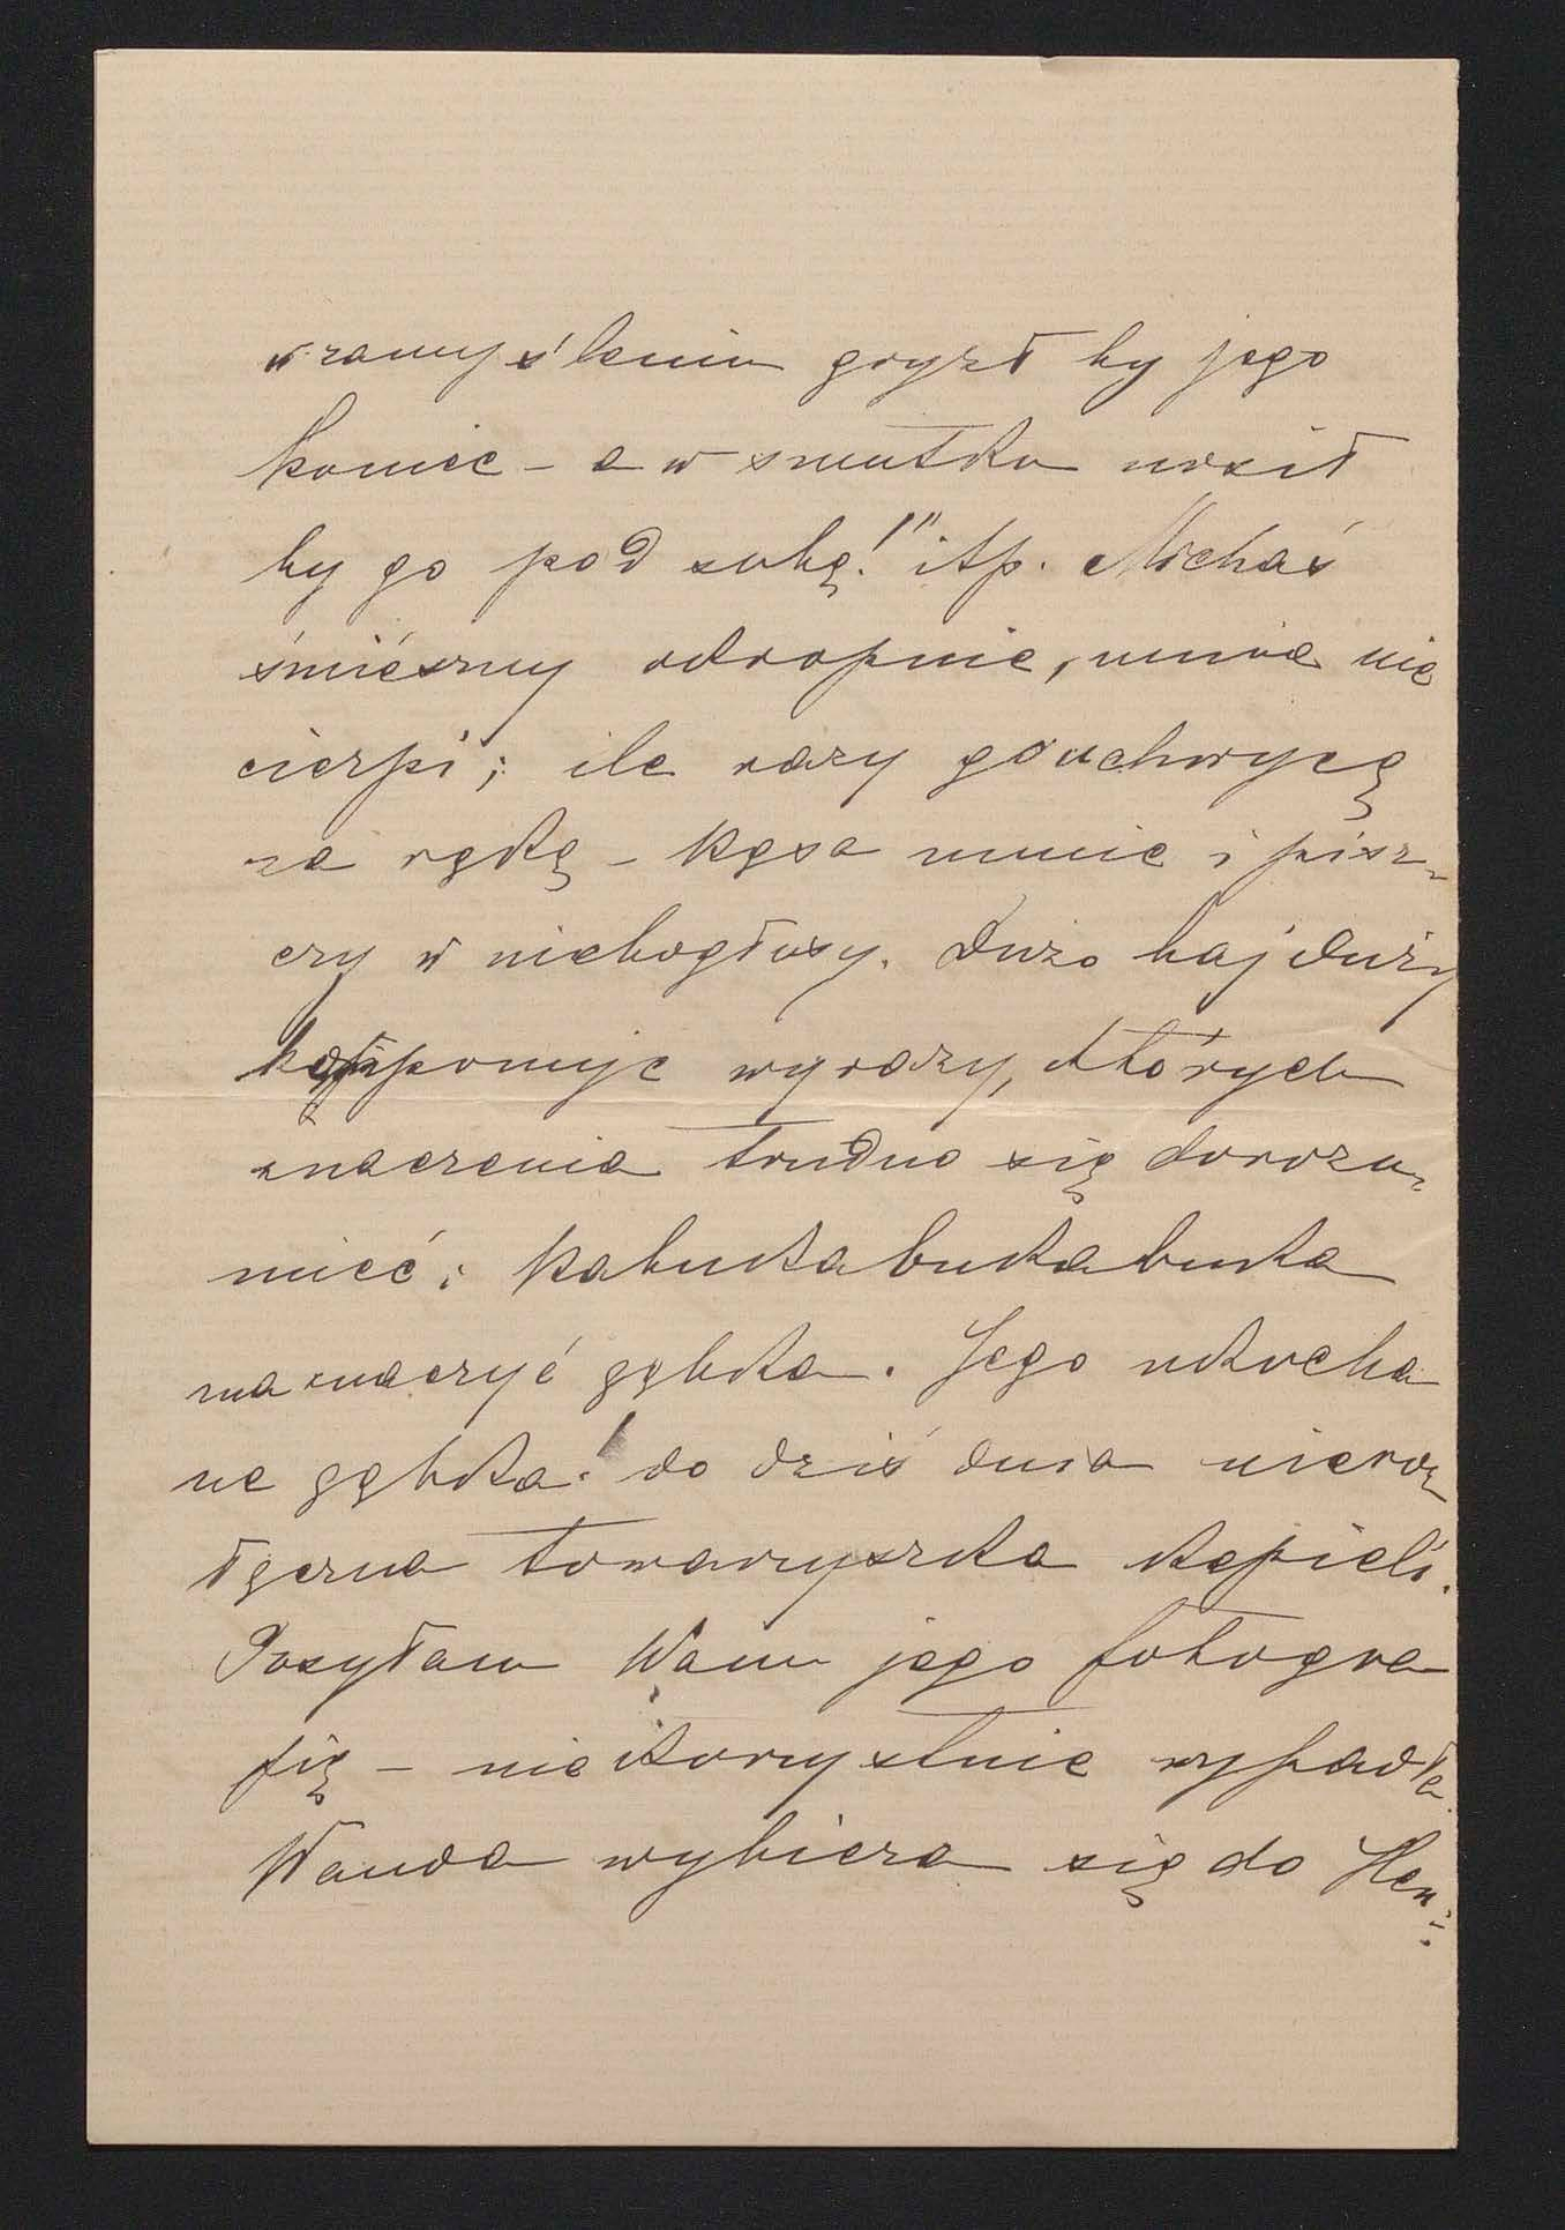 w zamyśleniu gryzł by jego
koniec – a w smutku nosił
by go pod sobą!" itp. Michaś
śmiészny okropnie, mnie nie
cierpi; ile razy go uchwycę
za rękę – kąsa mnie i pisz-
czy w niebogłosy. Dużo bajduży
komponuje wyrazy, których
znaczenia trudno się dorozu-
mieć; kabukabukabuka
ma znaczyć gąbka. Jego ukocha
na gąbka! do dziś dnia nieroz
łączna towarzyszka kąpieli.
Posyłam Wam jego fotogra
fię – niekorzystnie wypadła.
Wanda wybiera się do Hen-